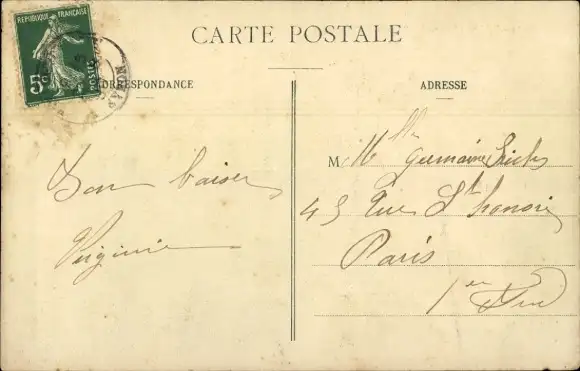 REPUBLIQUE FRANÇAISE
5c
POSTES
CARTE POSTALE
CORRESPONDANCE
ADRESSE
Bon baiser
Virginie
M Mlle Germaine
43 Rue St honoré
Paris
1er